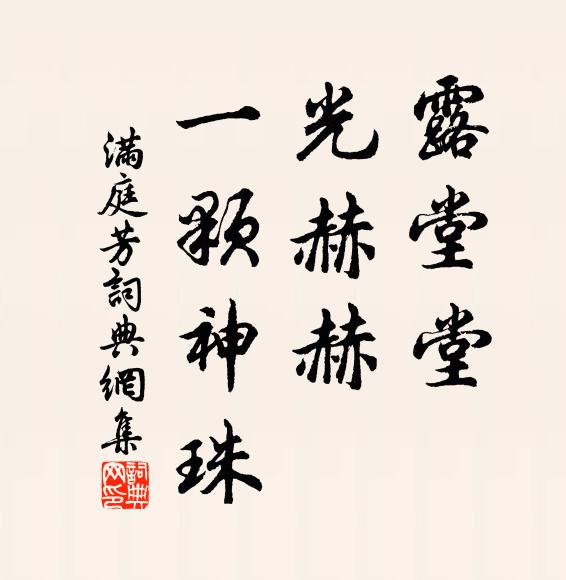 露堂堂
光赫赫
一顆神珠
滿庭芳詞典網集
詞典
网印